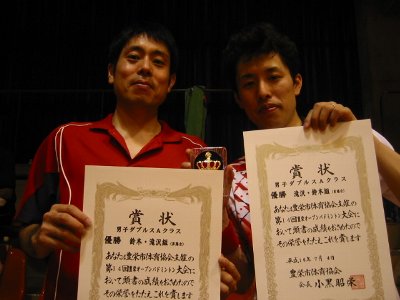 賞状
男子ダブルスAクラス
優勝 鈴木・滝沢組
あなたは豊栄市体育協会主催の
オープンバドミントン大会に
おいて頭書の成績をおさめたので
その栄誉をたたえこれを賞します
賞状
男子ダブルスAクラス
優勝 滝沢・鈴木組
あなたは豊栄市体育協会主催の
オープンバドミントン大会に
おいて頭書の成績をおさめたので
その栄誉をたたえこれを賞します
豊栄市体育協会
会長 小黒昭栄